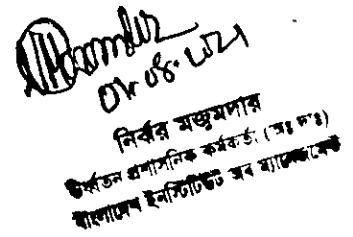 08.08.2021
নির্ঝর মজুমদার
উর্ধ্বতন প্রশাসনিক কর্মকর্তা (অঃ দাঃ)
বাংলাদেশ ইনস্টিটিউট অব ম্যানেজমেন্ট